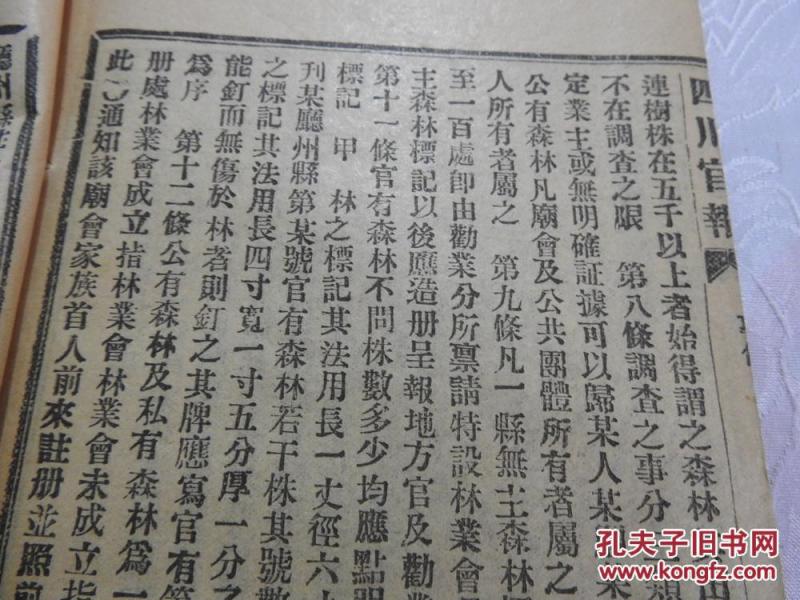 四川官報
連樹株在五千以上者始得謂之森林
不在調查之限　第八條調查之事分
定業主或無明確証據可以歸某人某
公有森林凡廟會及公共團體所有者屬之
人所有者屬之　第九條凡一縣無主森林
至一百處卽由勸業分所禀請特設林業會
主森林標記以後應造册呈報地方官及勸業
第十一條官有森林不問株數多少均應點明
標記　甲　林之標記其法用長一丈徑六
刊某廳州縣第某號官有森林若干株其號數
之標記其法用長四寸寬一寸五分厚一分之
能釘而無傷於林者則釘之其牌應寫官有第
爲序　第十二條公有森林及私有森林爲一
册處林業會成立指林業會林業會未成立指
此（）通知該廟會家族首人前來註册並照前
廳州縣
孔夫子旧书网
www.kongfz.com